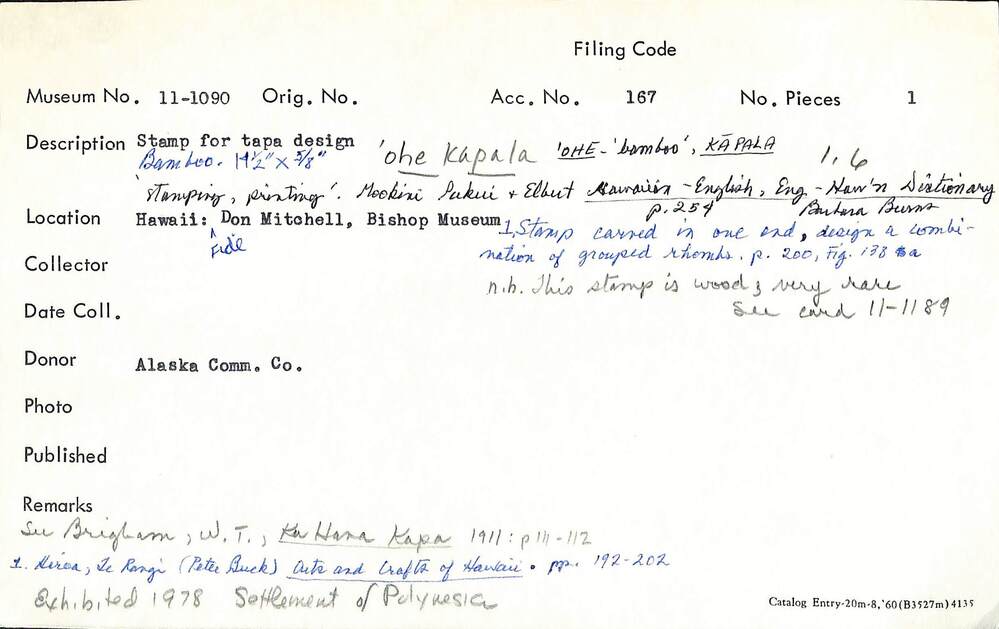 Filing Code
Museum No. 11-1090 Orig. No. Acc. No. 167 No. Pieces 1
Description Stamp for tapa design 'ohe kapala 'OHE - 'bamboo', KĀPALA 1, 6
Bamboo. 14½" x 5/8"
'stamping, printing'. Mookini Pukui + Elbert Hawaiian - English, Eng - Haw'n Dictionary
p. 254 Barbara Burns
Location Hawaii: Don Mitchell, Bishop Museum
Fide
1. Stamp carved in one end, design a combi-
nation of grouped rhombs. p. 200, Fig. 138 a
Collector
n.b. This stamp is wood; very rare
See card 11-1189
Date Coll.
Donor Alaska Comm. Co.
Photo
Published
Remarks
See Brigham, W. T., Ka Hana Kapa 1911: p 111-112
1. Hiroa, Te Rangi (Peter Buck) Arts and Crafts of Hawaii. pp. 192-202
Exhibited 1978 Settlement of Polynesia
Catalog Entry-20m-8,'60(B3527m)4135